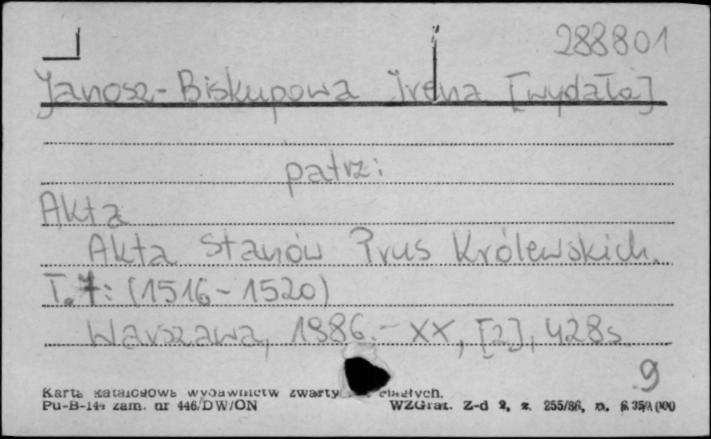 288801
Janosz-Biskupowa Irena [wydała]
patrz:
Akta
Akta Stanów Prus Królewskich.
T. 7: (1516-1520)
Warszawa, 1986.- XX, [2], 428s.
9
Karta katalogowa wydawnictw zwartych ciągłych.
Pu-B-144 zam. nr 446/DW/ON WZGraf. Z-d 2, z. 255/86, n.